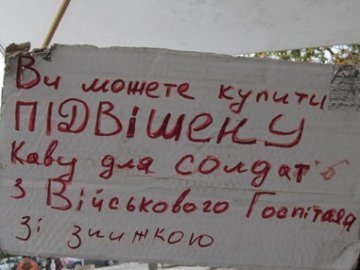 Ви можете купити
ПІДВІШЕНУ
каву для солдатів
з Військового Госпіталя
зі знижкою